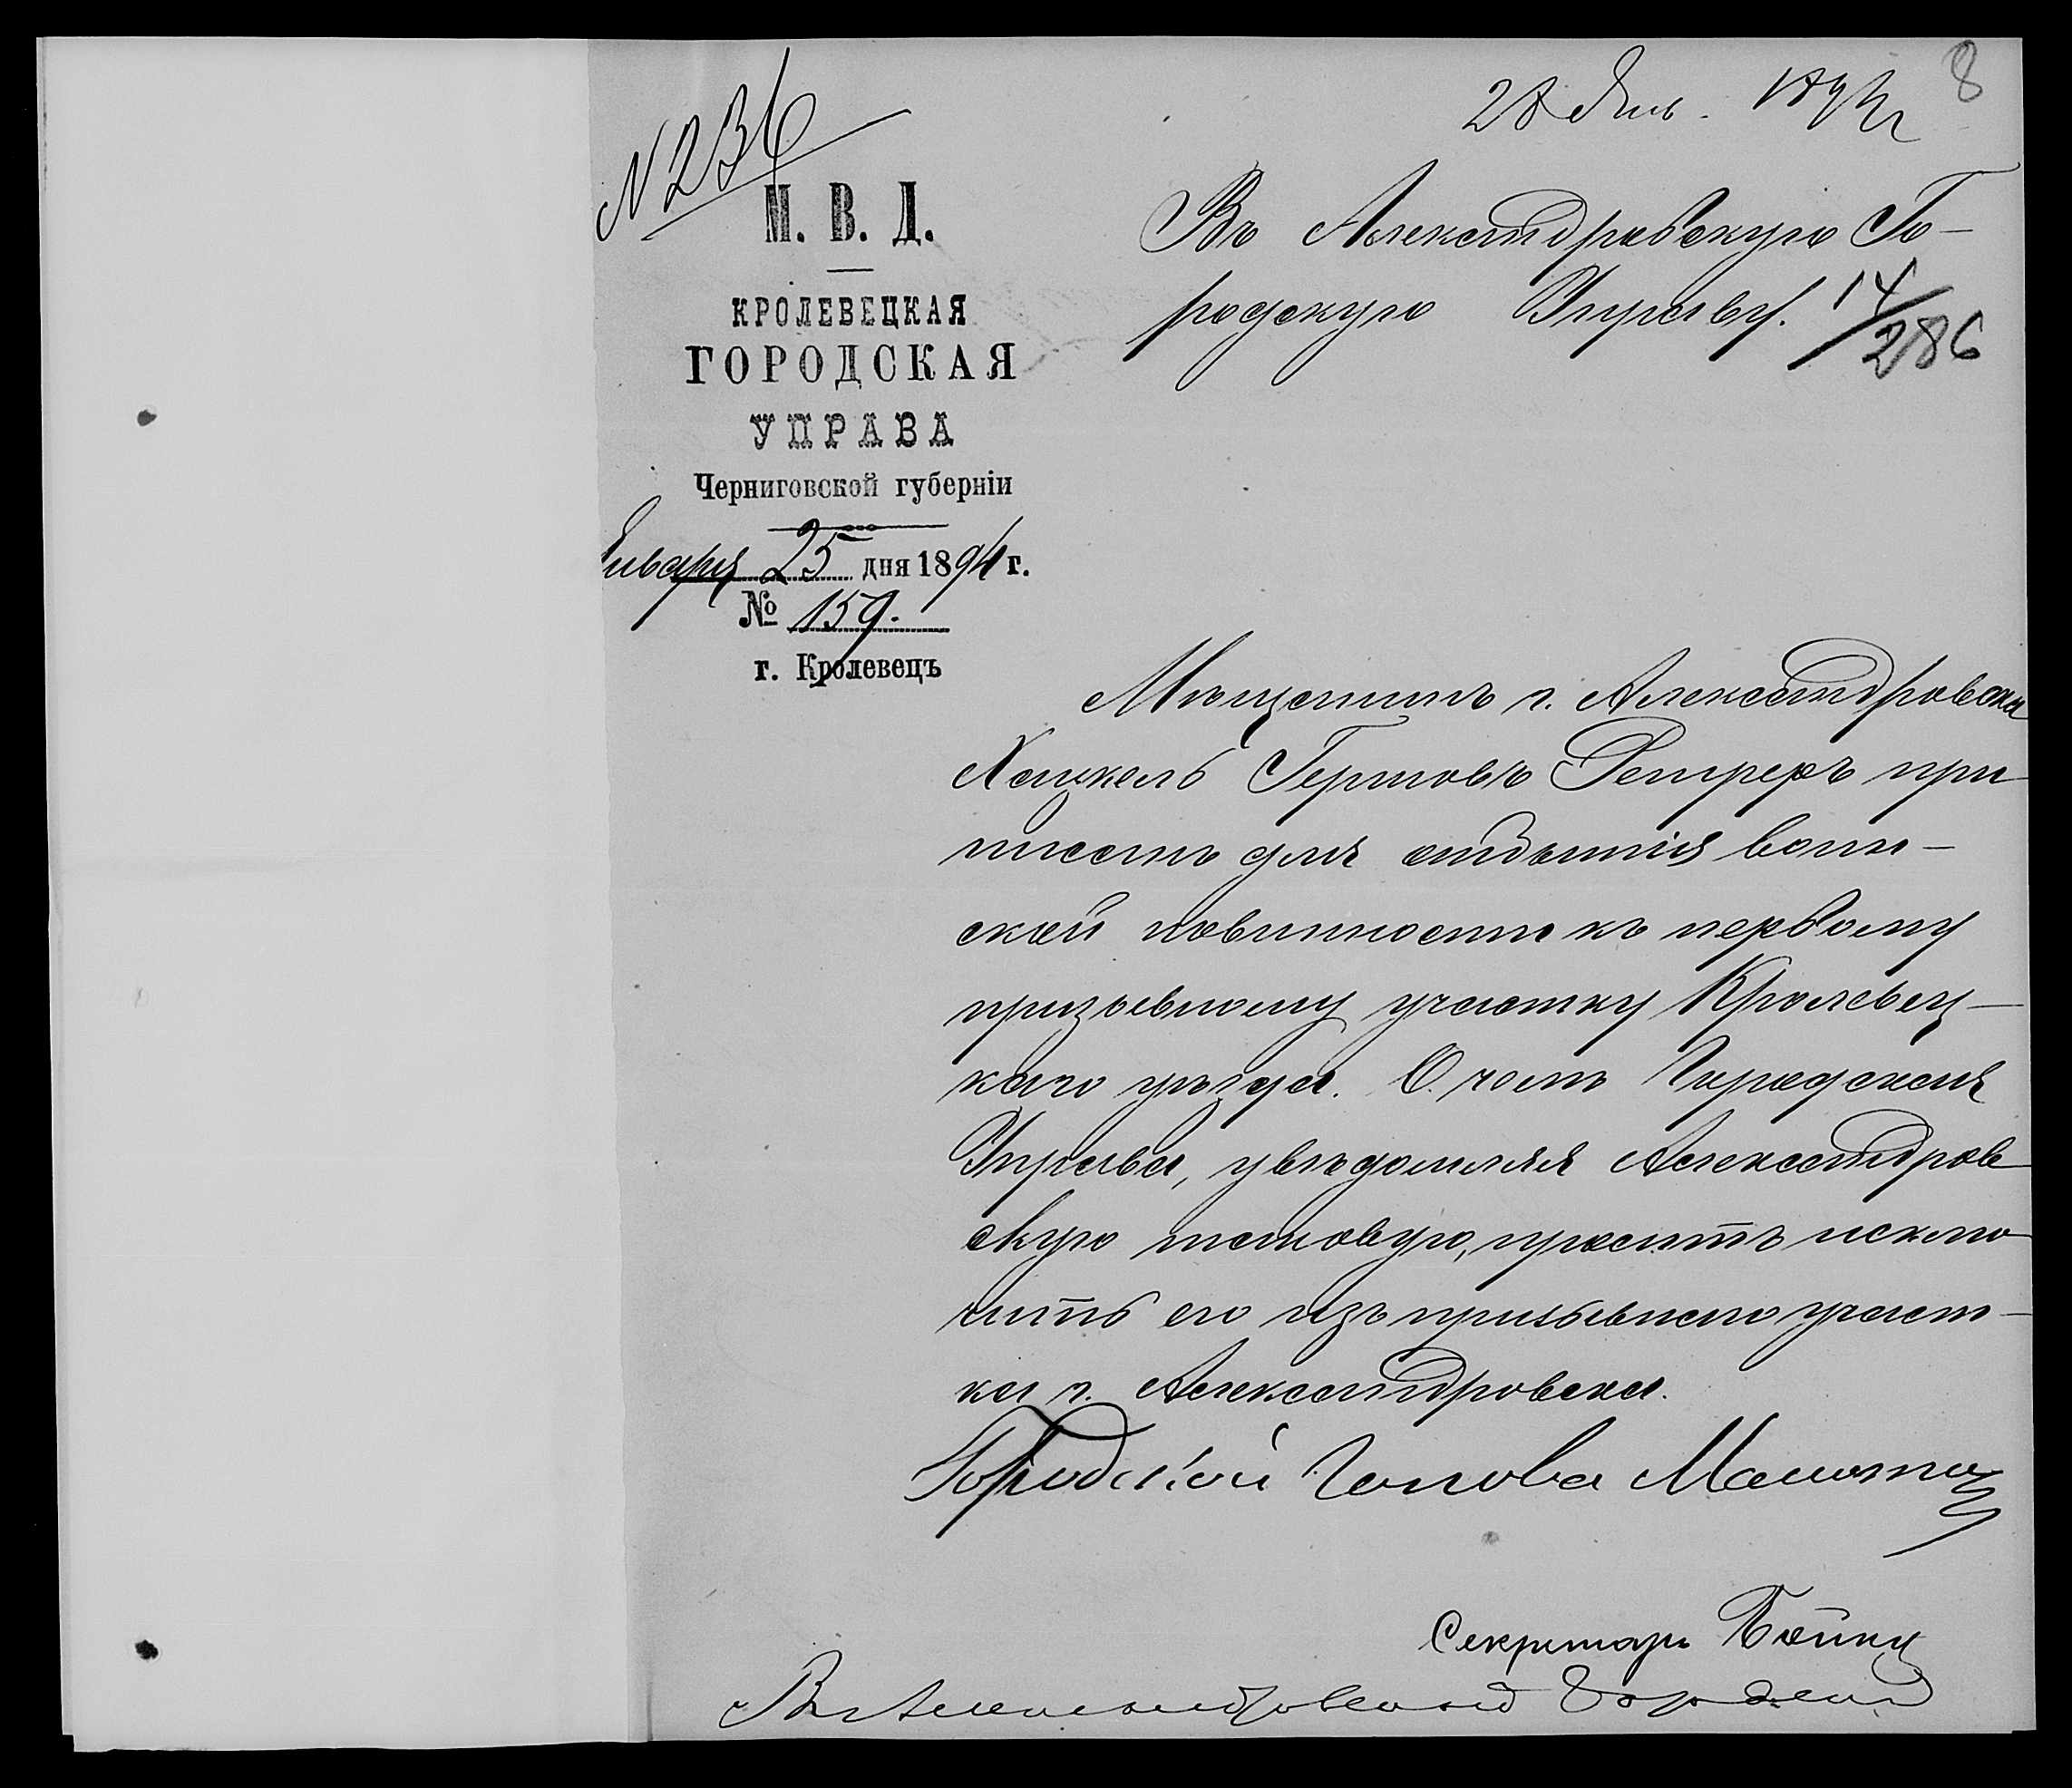 8
28 Янв. 1894 г
N 236
М. В. Д.
КРОЛЕВЕЦКАЯ
ГОРОДСКАЯ
УПРАВА
Черниговской губерніи
Января 25 дня 1894 г.
№ 159.
г. Кролевецъ
Въ Александровскую Го-
родскую Управу.
14/286
Мѣщанинъ г. Александровска
Хацкель Герцовъ при
писанъ для отбытія воин-
ской повинности къ первому
призывному участку Кролевец-
каго уѣзда. О чемъ Городская
Управа, увѣдомляя Александров
скую таковую, проситъ исклю
чить его изъ призывнаго участ-
ка г. Александровска.
Городской Голова
Секретарь Бойко